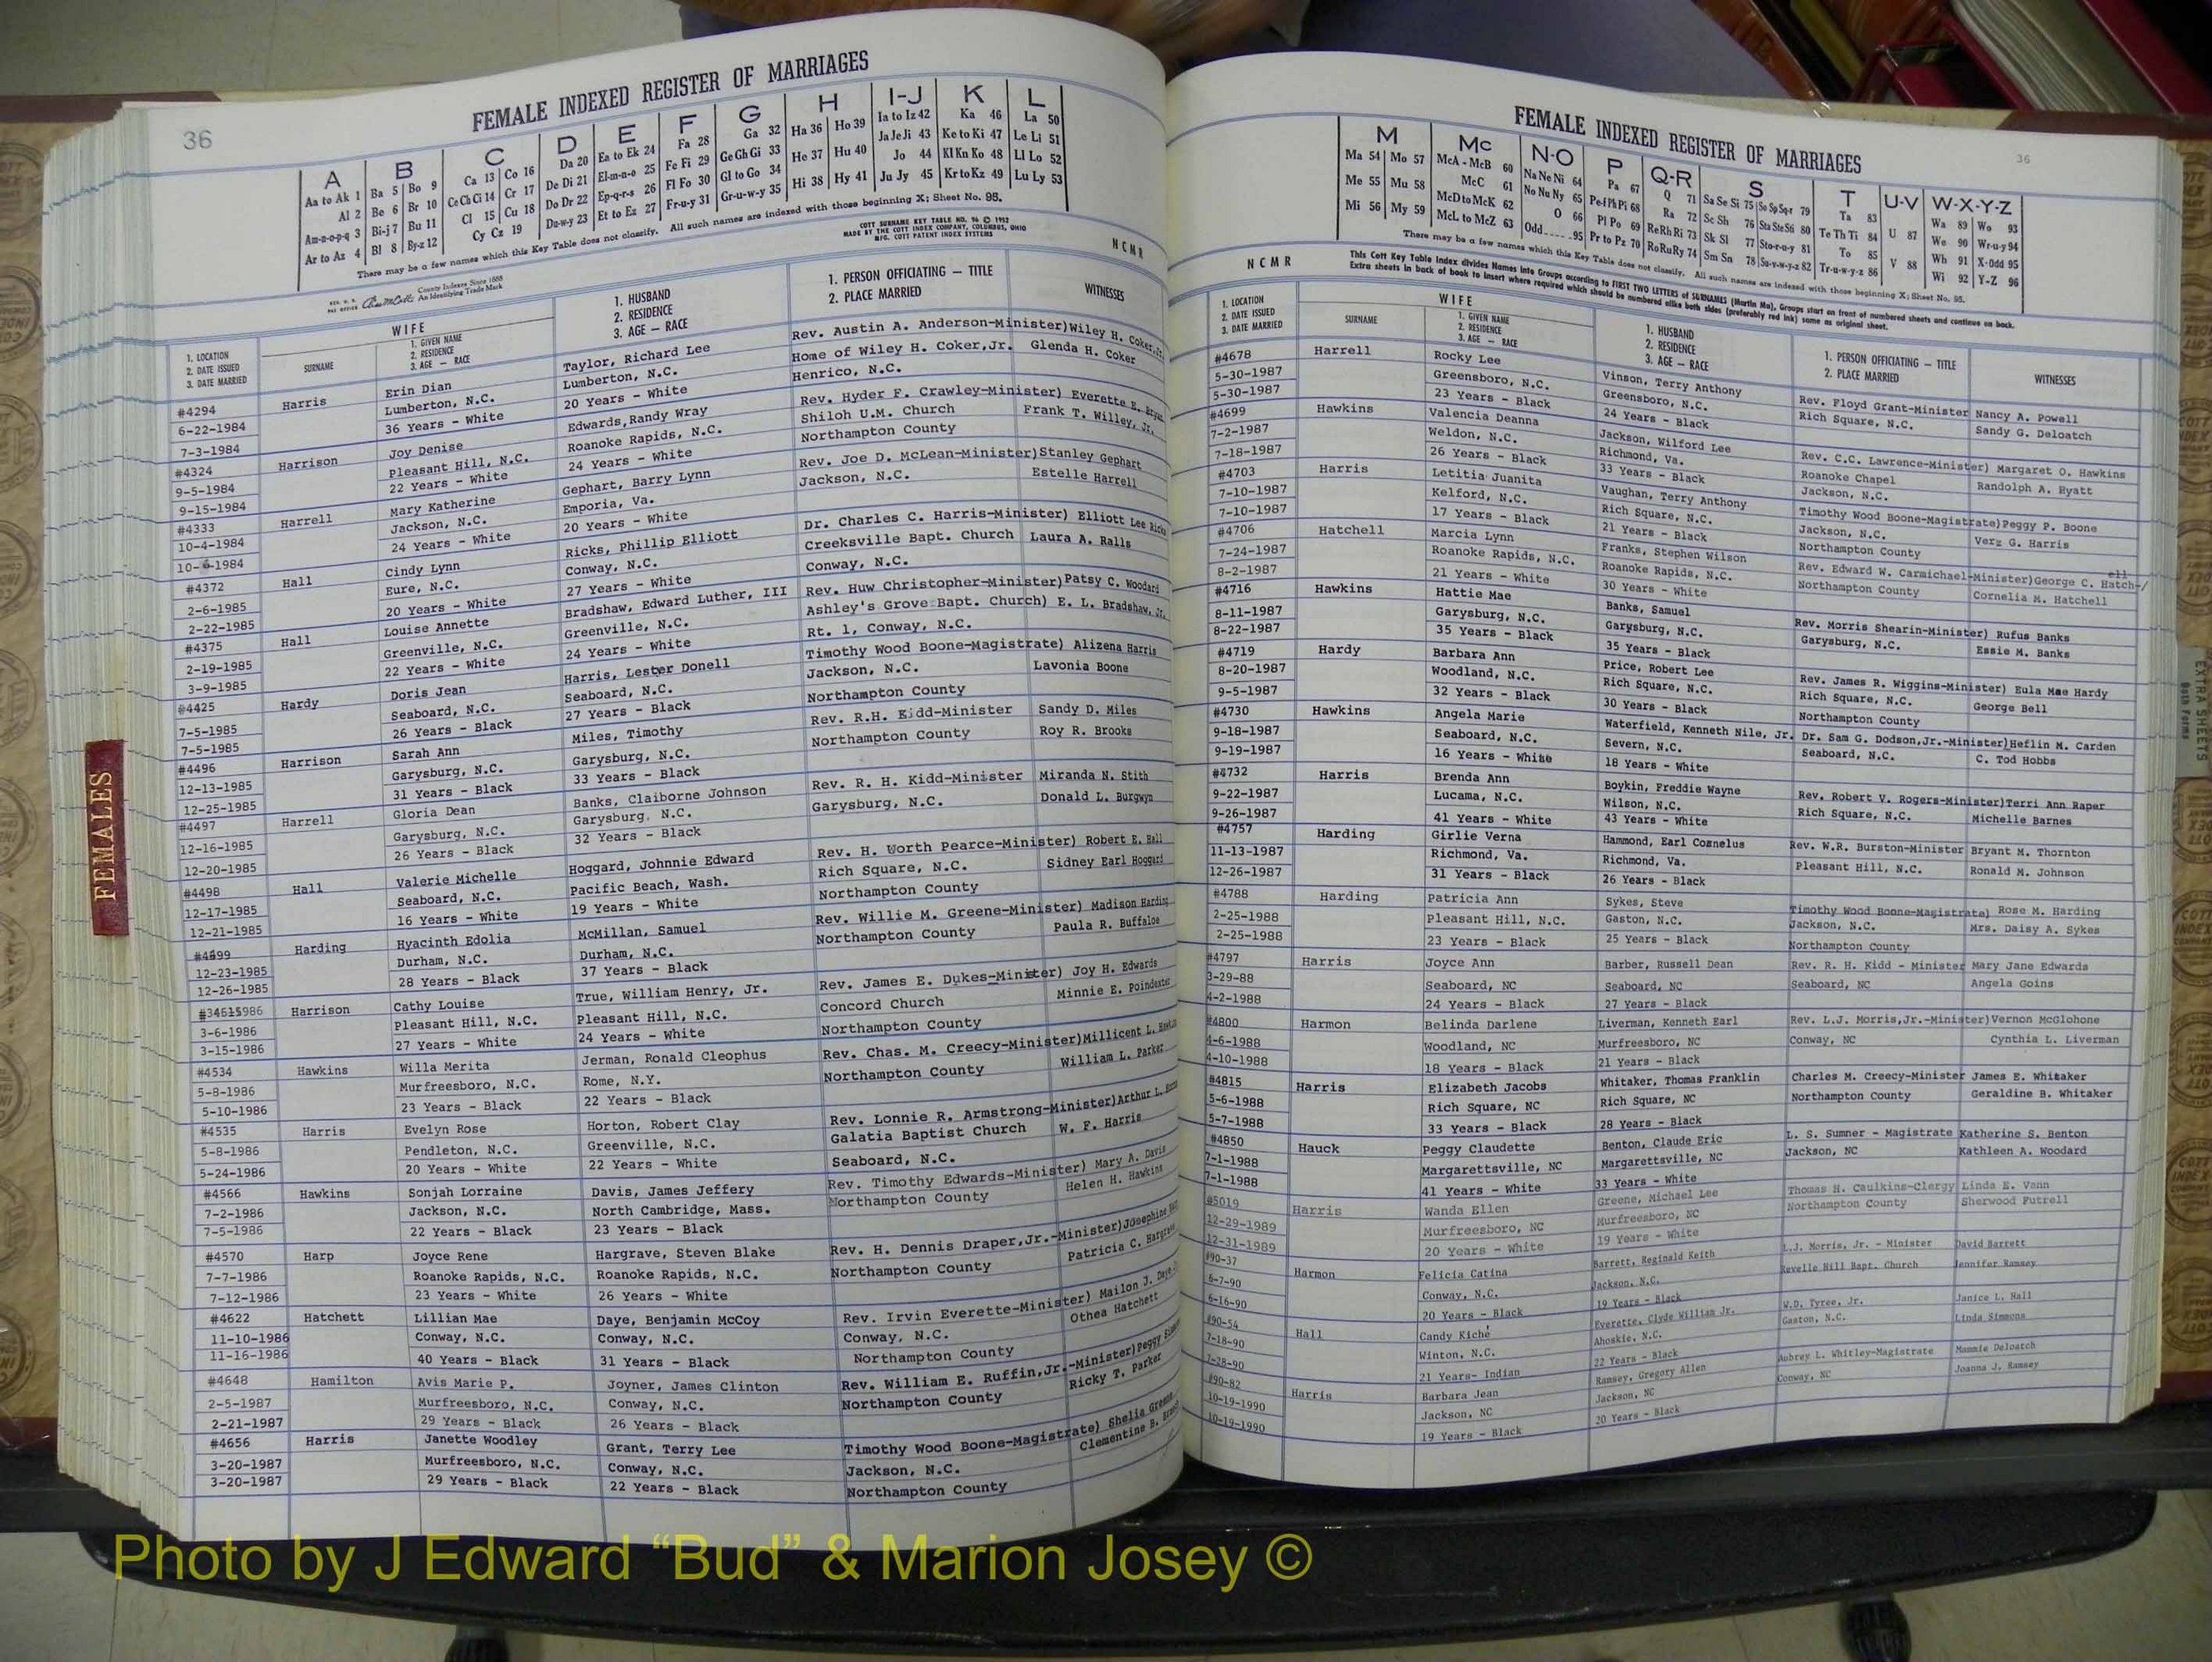 36
FEMALE INDEXED REGISTER OF MARRIAGES
A B C D E F G H I-J K L
Aa to Ak 1 Ba 5 Bo 9 Ca 13 Co 16 Da 20 Ea to Ek 24 Fa 28 Ga 32 Ha 36 Ho 39 Ia to Iz 42 Ka 46 La 50
Al 2 Be 6 Br 10 Ce Ch Ci 14 Cr 17 De Di 21 El-m-n-o 25 Fe Fi 29 Ge Gh Gi 33 He 37 Hu 40 Ja Je Ji 43 Ke to Ki 47 Le Li 51
Am-n-o-p-q 3 Bi-j 7 Bu 11 Cl 15 Cu 18 Do Dr 22 Ep-q-r-s 26 Fl Fo 30 Gl to Go 34 Hi 38 Hy 41 Jo 44 Kl Kn Ko 48 Ll Lo 52
Ar to Az 4 Bl 8 By-z 12 Cy Cz 19 Du-w-y 23 Et to Ez 27 Fr-u-y 31 Gr-u-w-y 35 Ju Jy 45 Kr to Kz 49 Lu Ly 53
There may be a few names which this Key Table does not classify. All such names are indexed with those beginning X; Sheet No. 95.
County Indexes Since 1888
An Identifying Trade Mark
COTT SURNAME KEY TABLE NO. 96 © 1952
MADE BY THE COTT INDEX COMPANY, COLUMBUS, OHIO
MFG. COTT PATENT INDEX SYSTEMS
NCMR
1. LOCATION
2. DATE ISSUED
3. DATE MARRIED
WIFE
SURNAME
1. GIVEN NAME
2. RESIDENCE
3. AGE — RACE
1. HUSBAND
2. RESIDENCE
3. AGE — RACE
1. PERSON OFFICIATING — TITLE
2. PLACE MARRIED
WITNESSES
#4294 Harris Erin Dian Taylor, Richard Lee Rev. Austin A. Anderson-Minister) Wiley H. Coker,
6-22-1984 Lumberton, N.C. Lumberton, N.C. Home of Wiley H. Coker,Jr. Glenda H. Coker
7-3-1984 36 Years - White 20 Years - White Henrico, N.C.
#4324 Harrison Joy Denise Edwards,Randy Wray Rev. Hyder F. Crawley-Minister) Everette E.
9-5-1984 Pleasant Hill, N.C. Roanoke Rapids, N.C. Shiloh U.M. Church Frank T. Willey, Jr.
9-15-1984 22 Years - White 24 Years - White Northampton County
#4333 Harrell Mary Katherine Gephart, Barry Lynn Rev. Joe D. McLean-Minister) Stanley Gephart
10-4-1984 Jackson, N.C. Emporia, Va. Jackson, N.C. Estelle Harrell
10-6-1984 24 Years - White 20 Years - White
#4372 Hall Cindy Lynn Ricks, Phillip Elliott Dr. Charles C. Harris-Minister) Elliott Lee Ricks
2-6-1985 Eure, N.C. Conway, N.C. Creeksville Bapt. Church Laura A. Ralls
2-22-1985 20 Years - White 27 Years - White Conway, N.C.
#4375 Hall Louise Annette Bradshaw, Edward Luther, III Rev. Huw Christopher-Minister) Patsy C. Woodard
2-19-1985 Greenville, N.C. Greenville, N.C. Ashley's Grove Bapt. Church) E. L. Bradshaw, Jr.
3-9-1985 22 Years - White 24 Years - White Rt. 1, Conway, N.C.
#4425 Hardy Doris Jean Harris, Lester Donell Timothy Wood Boone-Magistrate) Alizena Harris
7-5-1985 Seaboard, N.C. Seaboard, N.C. Jackson, N.C. Lavonia Boone
7-5-1985 26 Years - Black 27 Years - Black Northampton County
#4496 Harrison Sarah Ann Miles, Timothy Rev. R.H. Kidd-Minister Sandy D. Miles
12-13-1985 Garysburg, N.C. Garysburg, N.C. Northampton County Roy R. Brooks
12-25-1985 31 Years - Black 33 Years - Black
#4497 Harrell Gloria Dean Banks, Claiborne Johnson Rev. R. H. Kidd-Minister Miranda N. Stith
12-16-1985 Garysburg, N.C. Garysburg, N.C. Garysburg, N.C. Donald L. Burgwyn
12-20-1985 26 Years - Black 32 Years - Black
#4498 Hall Valerie Michelle Hoggard, Johnnie Edward Rev. H. Worth Pearce-Minister) Robert E. Hall
12-17-1985 Seaboard, N.C. Pacific Beach, Wash. Rich Square, N.C. Sidney Earl Hoggard
12-21-1985 16 Years - White 19 Years - White Northampton County
#4499 Harding Hyacinth Edolia McMillan, Samuel Rev. Willie M. Greene-Minister) Madison Harding
12-23-1985 Durham, N.C. Durham, N.C. Northampton County Paula R. Buffaloe
12-26-1985 28 Years - Black 37 Years - Black
Harrison Cathy Louise True, William Henry, Jr. Rev. James E. Dukes-Minister) Joy H. Edwards
3-6-1986 Pleasant Hill, N.C. Pleasant Hill, N.C. Concord Church Minnie E. Poindexter
3-15-1986 27 Years - White 24 Years - White Northampton County
#4534 Hawkins Willa Merita Jerman, Ronald Cleophus Rev. Chas. M. Creecy-Minister) Millicent L.
5-8-1986 Murfreesboro, N.C. Rome, N.Y. Northampton County William L. Parker
5-10-1986 23 Years - Black 22 Years - Black
#4535 Harris Evelyn Rose Horton, Robert Clay Rev. Lonnie R. Armstrong-Minister) Arthur L.
5-8-1986 Pendleton, N.C. Greenville, N.C. Galatia Baptist Church W. F. Harris
5-24-1986 20 Years - White 22 Years - White Seaboard, N.C.
#4566 Hawkins Sonjah Lorraine Davis, James Jeffery Rev. Timothy Edwards-Minister) Mary A. Davis
7-2-1986 Jackson, N.C. North Cambridge, Mass. Northampton County Helen H. Hawkins
7-5-1986 22 Years - Black 23 Years - Black
#4570 Harp Joyce Rene Hargrave, Steven Blake Rev. H. Dennis Draper,Jr.-Minister) Josephine
7-7-1986 Roanoke Rapids, N.C. Roanoke Rapids, N.C. Northampton County Patricia C. Hargrave
7-12-1986 23 Years - White 26 Years - White
#4622 Hatchett Lillian Mae Daye, Benjamin McCoy Rev. Irvin Everette-Minister) Mailon J. Daye
11-10-1986 Conway, N.C. Conway, N.C. Conway, N.C. Othea Hatchett
11-16-1986 40 Years - Black 31 Years - Black Northampton County
#4648 Hamilton Avis Marie P. Joyner, James Clinton Rev. William E. Ruffin,Jr.-Minister) Peggy
2-5-1987 Murfreesboro, N.C. Conway, N.C. Northampton County Ricky T. Parker
2-21-1987 29 Years - Black 26 Years - Black
#4656 Harris Janette Woodley Grant, Terry Lee Timothy Wood Boone-Magistrate) Shelia Greene
3-20-1987 Murfreesboro, N.C. Conway, N.C. Jackson, N.C. Clementine B.
3-20-1987 29 Years - Black 22 Years - Black Northampton County
FEMALES
FEMALE INDEXED REGISTER OF MARRIAGES
36
M Mc N-O P Q-R S T U-V W-X-Y-Z
Ma 54 Mo 57 McA - McB 60 Na Ne Ni 64 Pa 67 Q 71 Sa Se Si 75 So Sp Sq-r 79 Ta 83 U 87 Wa 89 Wo 93
Me 55 Mu 58 McC 61 No Nu Ny 65 Pe-f Ph Pi 68 Ra 72 Sc Sh 76 Sta Ste Sti 80 Te Th Ti 84 V 88 We 90 Wr-u-y 94
Mi 56 My 59 McD to McK 62 O 66 Pl Po 69 Re Rh Ri 73 Sk Sl 77 Sto-r-u-y 81 To 85 Wh 91 X-Odd 95
McL to McZ 63 Odd 95 Pr to Pz 70 Ro Ru Ry 74 Sm Sn 78 Su-v-w-y-z 82 Tr-u-w-y-z 86 Wi 92 Y-Z 96
There may be a few names which this Key Table does not classify. All such names are indexed with those beginning X; Sheet No. 95.
This Cott Key Table Index divides Names into Groups according to FIRST TWO LETTERS of SURNAMES (Martin Ma), Groups start on front of numbered sheets and continue on back.
Extra sheets in back of book to insert where required which should be numbered alike both sides (preferably red ink) same as original sheet.
NCMR
1. LOCATION
2. DATE ISSUED
3. DATE MARRIED
WIFE
SURNAME
1. GIVEN NAME
2. RESIDENCE
3. AGE — RACE
1. HUSBAND
2. RESIDENCE
3. AGE — RACE
1. PERSON OFFICIATING — TITLE
2. PLACE MARRIED
WITNESSES
#4678 Harrell Rocky Lee Vinson, Terry Anthony Rev. Floyd Grant-Minister Nancy A. Powell
5-30-1987 Greensboro, N.C. Greensboro, N.C. Rich Square, N.C. Sandy G. Deloatch
5-30-1987 23 Years - Black 24 Years - Black
#4699 Hawkins Valencia Deanna Jackson, Wilford Lee Rev. C.C. Lawrence-Minister) Margaret O. Hawkins
7-2-1987 Weldon, N.C. Richmond, Va. Roanoke Chapel Randolph A. Hyatt
7-18-1987 26 Years - Black 33 Years - Black Jackson, N.C.
#4703 Harris Letitia Juanita Vaughan, Terry Anthony Timothy Wood Boone-Magistrate) Peggy P. Boone
7-10-1987 Kelford, N.C. Rich Square, N.C. Jackson, N.C. Vera G. Harris
7-10-1987 17 Years - Black 21 Years - Black Northampton County
#4706 Hatchell Marcia Lynn Franks, Stephen Wilson Rev. Edward W. Carmichael-Minister) George C. Hatch-/ell
7-24-1987 Roanoke Rapids, N.C. Roanoke Rapids, N.C. Northampton County Cornelia M. Hatchell
8-2-1987 21 Years - White 30 Years - White
#4716 Hawkins Hattie Mae Banks, Samuel Rev. Morris Shearin-Minister) Rufus Banks
8-11-1987 Garysburg, N.C. Garysburg, N.C. Garysburg, N.C. Essie M. Banks
8-22-1987 35 Years - Black 35 Years - Black
#4719 Hardy Barbara Ann Price, Robert Lee Rev. James R. Wiggins-Minister) Eula Mae Hardy
8-20-1987 Woodland, N.C. Rich Square, N.C. Rich Square, N.C. George Bell
9-5-1987 32 Years - Black 30 Years - Black Northampton County
#4730 Hawkins Angela Marie Waterfield, Kenneth Nile, Jr. Dr. Sam G. Dodson,Jr.-Minister) Heflin M. Carden
9-18-1987 Seaboard, N.C. Severn, N.C. Seaboard, N.C. C. Tod Hobbs
9-19-1987 16 Years - White 18 Years - White
#4732 Harris Brenda Ann Boykin, Freddie Wayne Rev. Robert V. Rogers-Minister) Terri Ann Raper
9-22-1987 Lucama, N.C. Wilson, N.C. Rich Square, N.C. Michelle Barnes
9-26-1987 41 Years - White 43 Years - White
#4757 Harding Girlie Verna Hammond, Earl Cornelus Rev. W.R. Burston-Minister Bryant M. Thornton
11-13-1987 Richmond, Va. Richmond, Va. Pleasant Hill, N.C. Ronald M. Johnson
12-26-1987 31 Years - Black 26 Years - Black
#4788 Harding Patricia Ann Sykes, Steve Timothy Wood Boone-Magistrate) Rose M. Harding
2-25-1988 Pleasant Hill, N.C. Gaston, N.C. Jackson, N.C. Mrs. Daisy A. Sykes
2-25-1988 23 Years - Black 25 Years - Black Northampton County
#4797 Harris Joyce Ann Barber, Russell Dean Rev. R. H. Kidd - Minister Mary Jane Edwards
3-29-88 Seaboard, NC Seaboard, NC Seaboard, NC Angela Goins
4-2-1988 24 Years - Black 27 Years - Black
#4800 Harmon Belinda Darlene Liverman, Kenneth Earl Rev. L.J. Morris,Jr.-Minister) Vernon McGlohone
4-6-1988 Woodland, NC Murfreesboro, NC Conway, NC Cynthia L. Liverman
4-10-1988 18 Years - Black 21 Years - Black
#4815 Harris Elizabeth Jacobs Whitaker, Thomas Franklin Charles M. Creecy-Minister James E. Whitaker
5-6-1988 Rich Square, NC Rich Square, NC Northampton County Geraldine B. Whitaker
5-7-1988 33 Years - Black 28 Years - Black
#4850 Hauck Peggy Claudette Benton, Claude Eric L. S. Sumner - Magistrate Katherine S. Benton
7-1-1988 Margarettsville, NC Margarettsville, NC Jackson, NC Kathleen A. Woodard
7-1-1988 41 Years - White 33 Years - White
#5019 Harris Wanda Ellen Greene, Michael Lee Thomas H. Caulkins-Clergy Linda E. Vann
12-29-1989 Murfreesboro, NC Murfreesboro, NC Northampton County Sherwood Futrell
12-31-1989 20 Years - White 19 Years - White
#90-37 Harmon Felicia Catina Barrett, Reginald Keith L.J. Morris, Jr. - Minister David Barrett
6-7-90 Conway, N.C. Jackson, N.C. Revelle Hill Bapt. Church Jennifer Ramsey
6-16-90 20 Years - Black 19 Years - Black
#90-54 Hall Candy Kiché Everette, Clyde William Jr. W.D. Tyree, Jr. Janice L. Hall
7-18-90 Winton, N.C. Ahoskie, N.C. Gaston, N.C. Linda Simmons
7-28-90 21 Years- Indian 22 Years - Black
#90-82 Harris Barbara Jean Ramsey, Gregory Allen Aubrey L. Whitley-Magistrate Mammie Deloatch
10-19-1990 Jackson, NC Jackson, NC Conway, NC Joanna J. Ramsey
10-19-1990 19 Years - Black 20 Years - Black
EXTRA SHEETS
Both Forms
Photo by J Edward “Bud” & Marion Josey ©